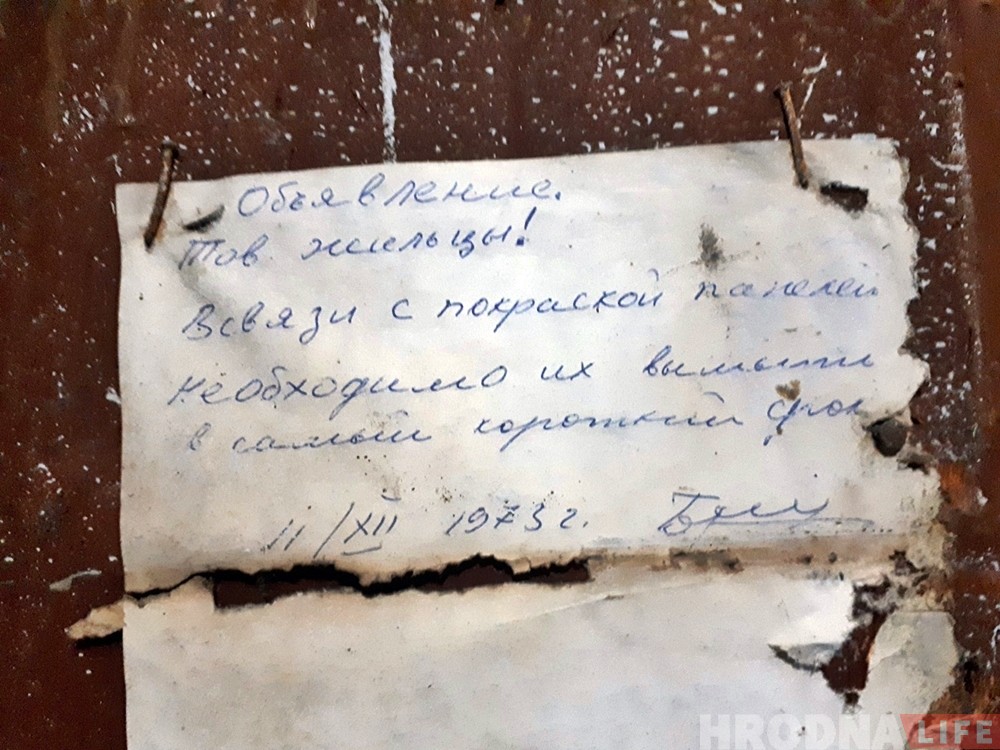 Объявление.
Тов. жильцы!
Всвязи с покраской панелей
необходимо их вымыть
в самый короткий срок
11/XII 1973 г.
HRODNA LIFE